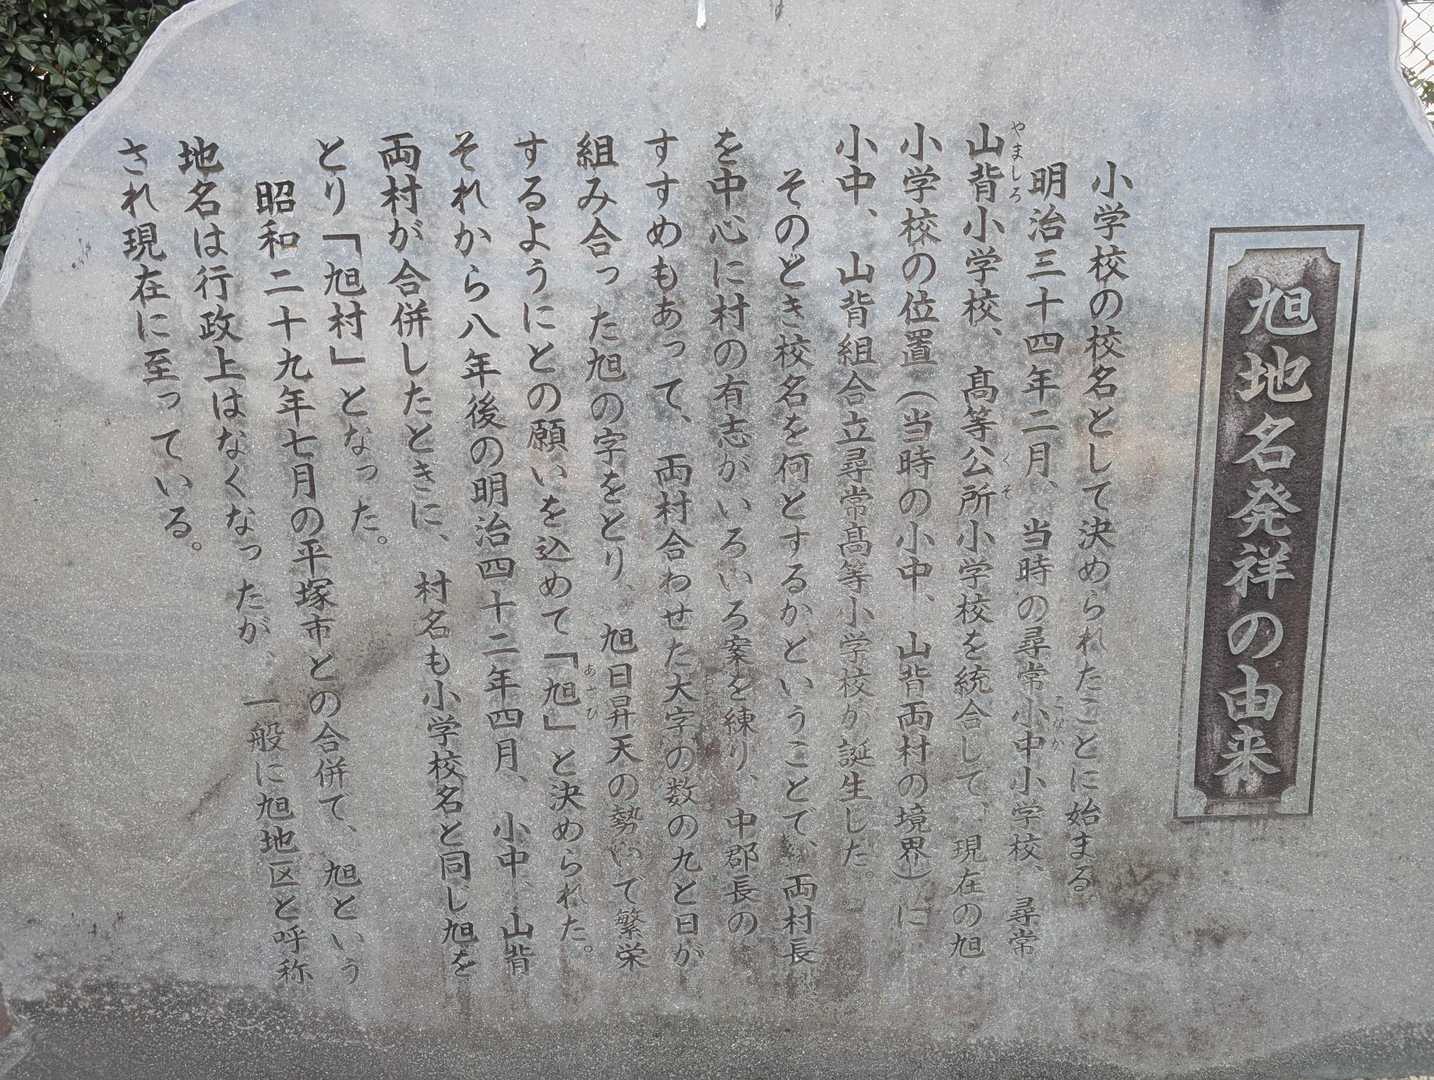 旭地名発祥の由来
小学校の校名として決められたことに始まる。
明治三十四年二月、当時の尋常小中小学校、尋常
こなか
山背小学校、高等公所小学校を統合して、現在の旭
やましろ
くぞ
小学校の位置(当時の小中、山背両村の境界)に
小中、山背組合立尋常高等小学校が誕生した。
そのとき校名を何とするかということで、両村長
を中心に村の有志がいろいろ案を練り、中郡長の
すすめもあって、両村合わせた大字の数の九と日が
組み合った旭の字をとり、旭日昇天の勢いで繁栄
するようにとの願いを込めて「旭」と決められた。
あさひ
それから八年後の明治四十二年四月、小中、山背
両村が合併したときに、村名も小学校名と同じ旭を
とり「旭村」となった。
昭和二十九年七月の平塚市との合併で、旭という
地名は行政上はなくなったが、一般に旭地区と呼称
され現在に至っている。